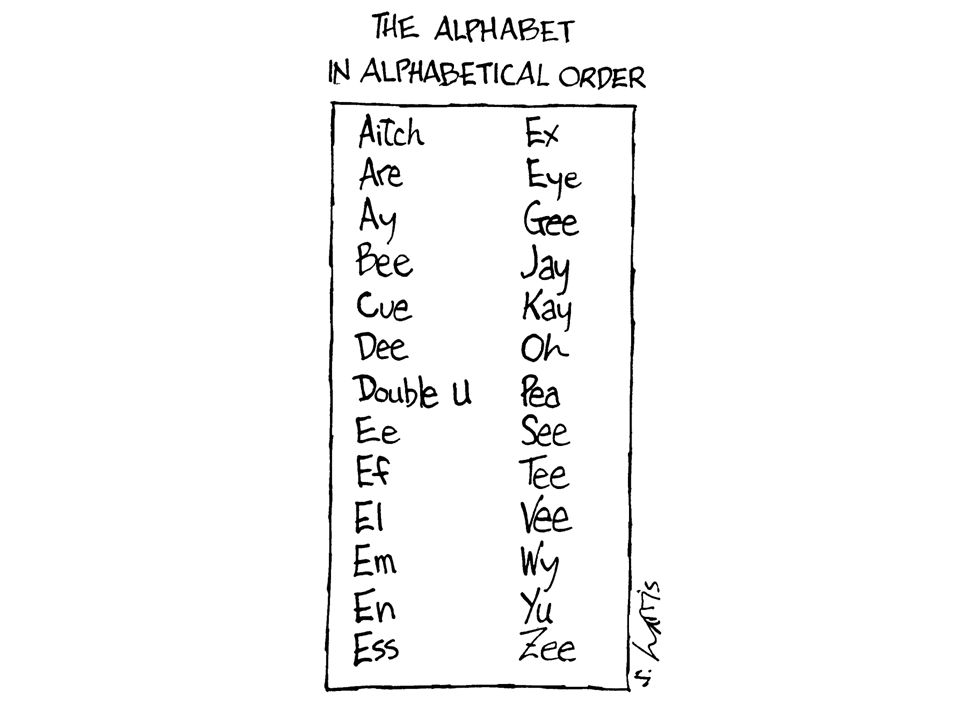 THE ALPHABET
IN ALPHABETICAL ORDER
Aitch
Are
Ay
Bee
Cue
Dee
Double U
Ee
Ef
El
Em
En
Ess
Ex
Eye
Gee
Jay
Kay
Oh
Pea
See
Tee
Vee
Wy
Yu
Zee
s. harris